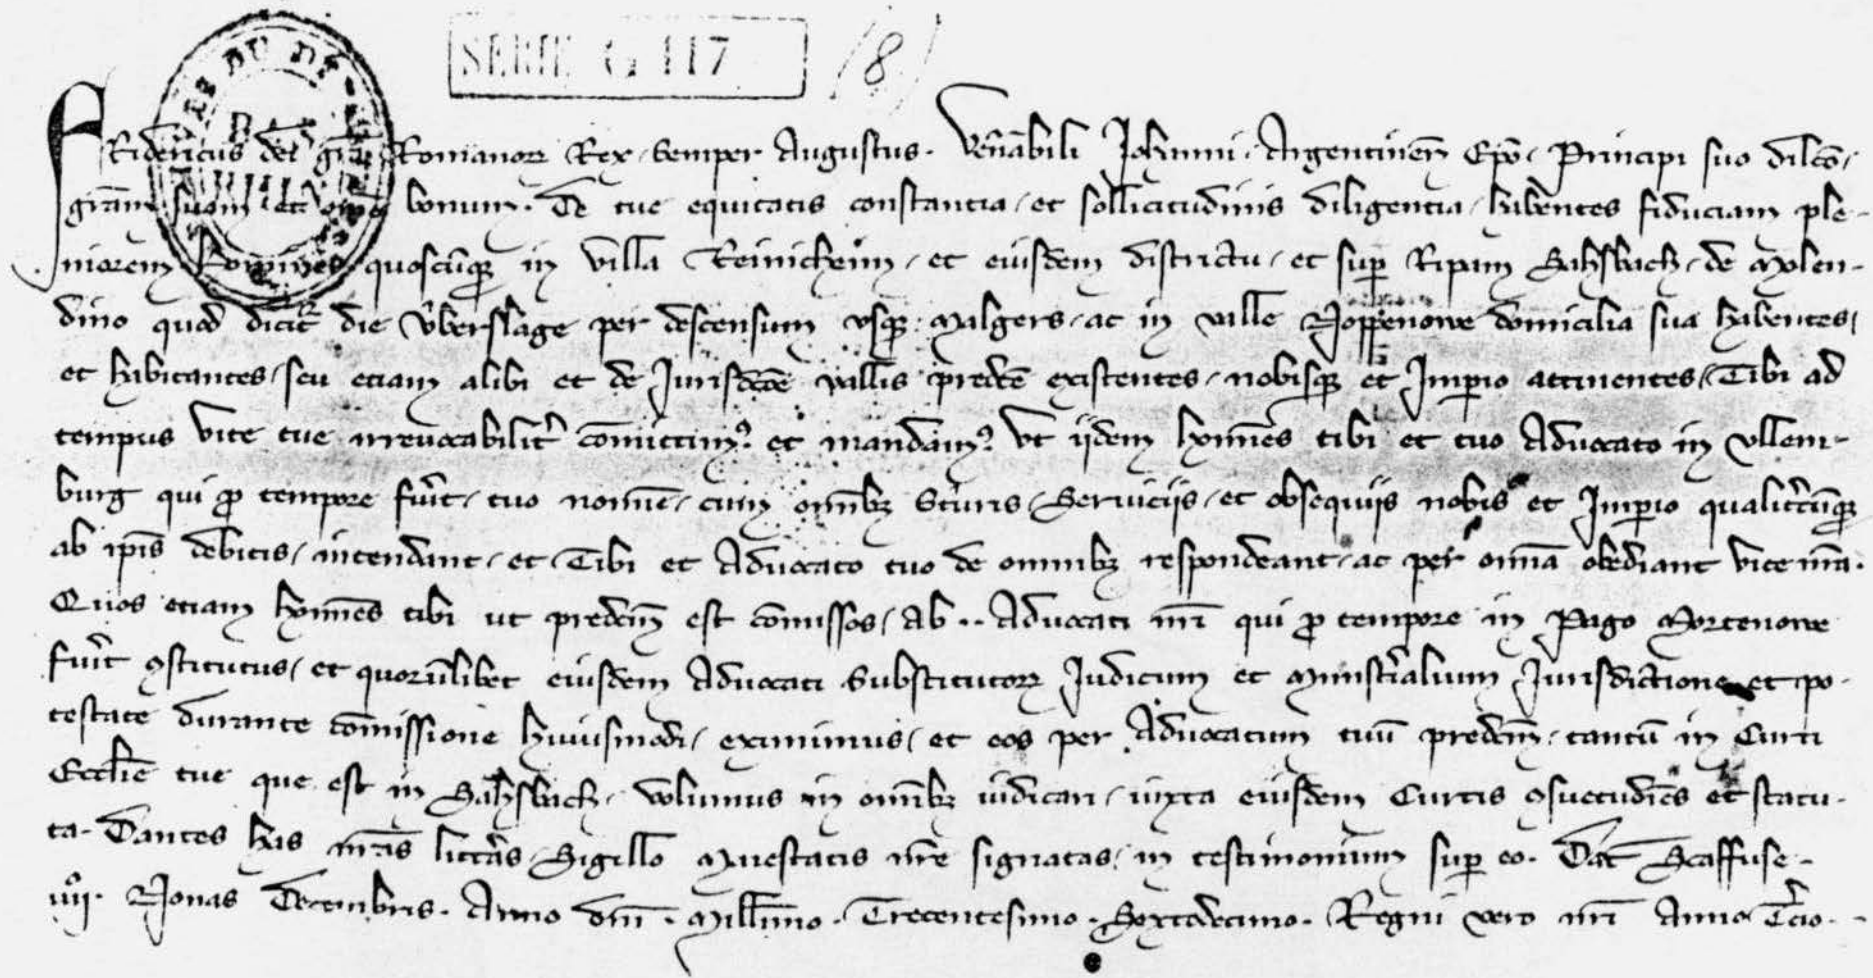 SERIE G 117 (8)
Fridericus dei gr̄a Romanoꝝ Rex semper Augustus. Ven̄abili Johanni Argentinen̄ Ep̄o Principi suo dilc̄o
gr̄am suam et om̄e bonum. De tue equitatis constantia et sollicitudinis diligentia habentes fiduciam ple-
niorem homines quoscūqꝫ in villa Reinichein et eiusdem districtu et suꝑ Ripam Sahsbach de Molen-
dino quod dicit᷑ die Vberslage per descensum vsqꝫ Malgers ac in valle Noppenowe domicilia sua habentes
et habitantes seu etiam alibi et de Jurisdc̄oē vallis predc̄e existentes nobisqꝫ et Imꝑio attinentes Tibi ad
tempus vite tue irreuocabilit᷑ com̄ittimꝰ et mandamꝰ vt ijdem hoīnes tibi et tuo Aduocato in Vllem-
burg qui ꝓ tempore fuīt tuo nomīe cum om̄ibꝫ Sturis Seruicijs et obsequijs nobis et Imꝑio qualit᷑cūqꝫ
ab ip̄is debitis intendant et Tibi et Aduocato tuo de omnibꝫ respondeant ac per om̄ia obediant vice nr̄a.
Quos etiam hoīnes tibi ut predc̄m est com̄issos ab .. Aduocati nr̄i qui ꝓ tempore in Pago Mortenowe
fuīt ꝯstitutus et quorūlibet eiusdem Aduocati Substitutoꝝ Judicum et Minist᷑ialium Jurisdictione et po-
testate durante com̄issione huiusmodi eximimus et eos per Aduocatum tuū predc̄m tantū in Curti
Eccl̄ie tue que est in Sahsbach volumus in om̄ibꝫ iudicari iuxta eiusdem Curtis ꝯsuetudīes et statu-
ta. Dantes has nr̄as litt᷑as Sigillo Maiestatis nr̄e signatas in testimonium suꝑ eo. Dat̄ Scaffuse
iiij. Nonas Decembris. Anno dn̄i Millīmo Trecentesimo Sextodecimo. Regni vero nr̄i Anno T᷑cio.